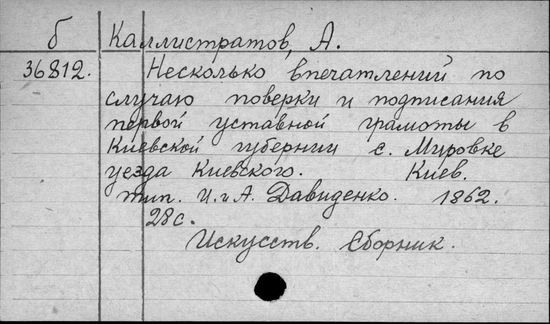 б Каллистратов, А.
36812. Несколько впечатлений по
случаю поверки и подписания
первой уставной грамоты в
Киевской губернии с. Муровке
уезда Киевского. Киев.
тип. И. и А. Давиденко. 1862.
28с.
Искусств. Сборник.